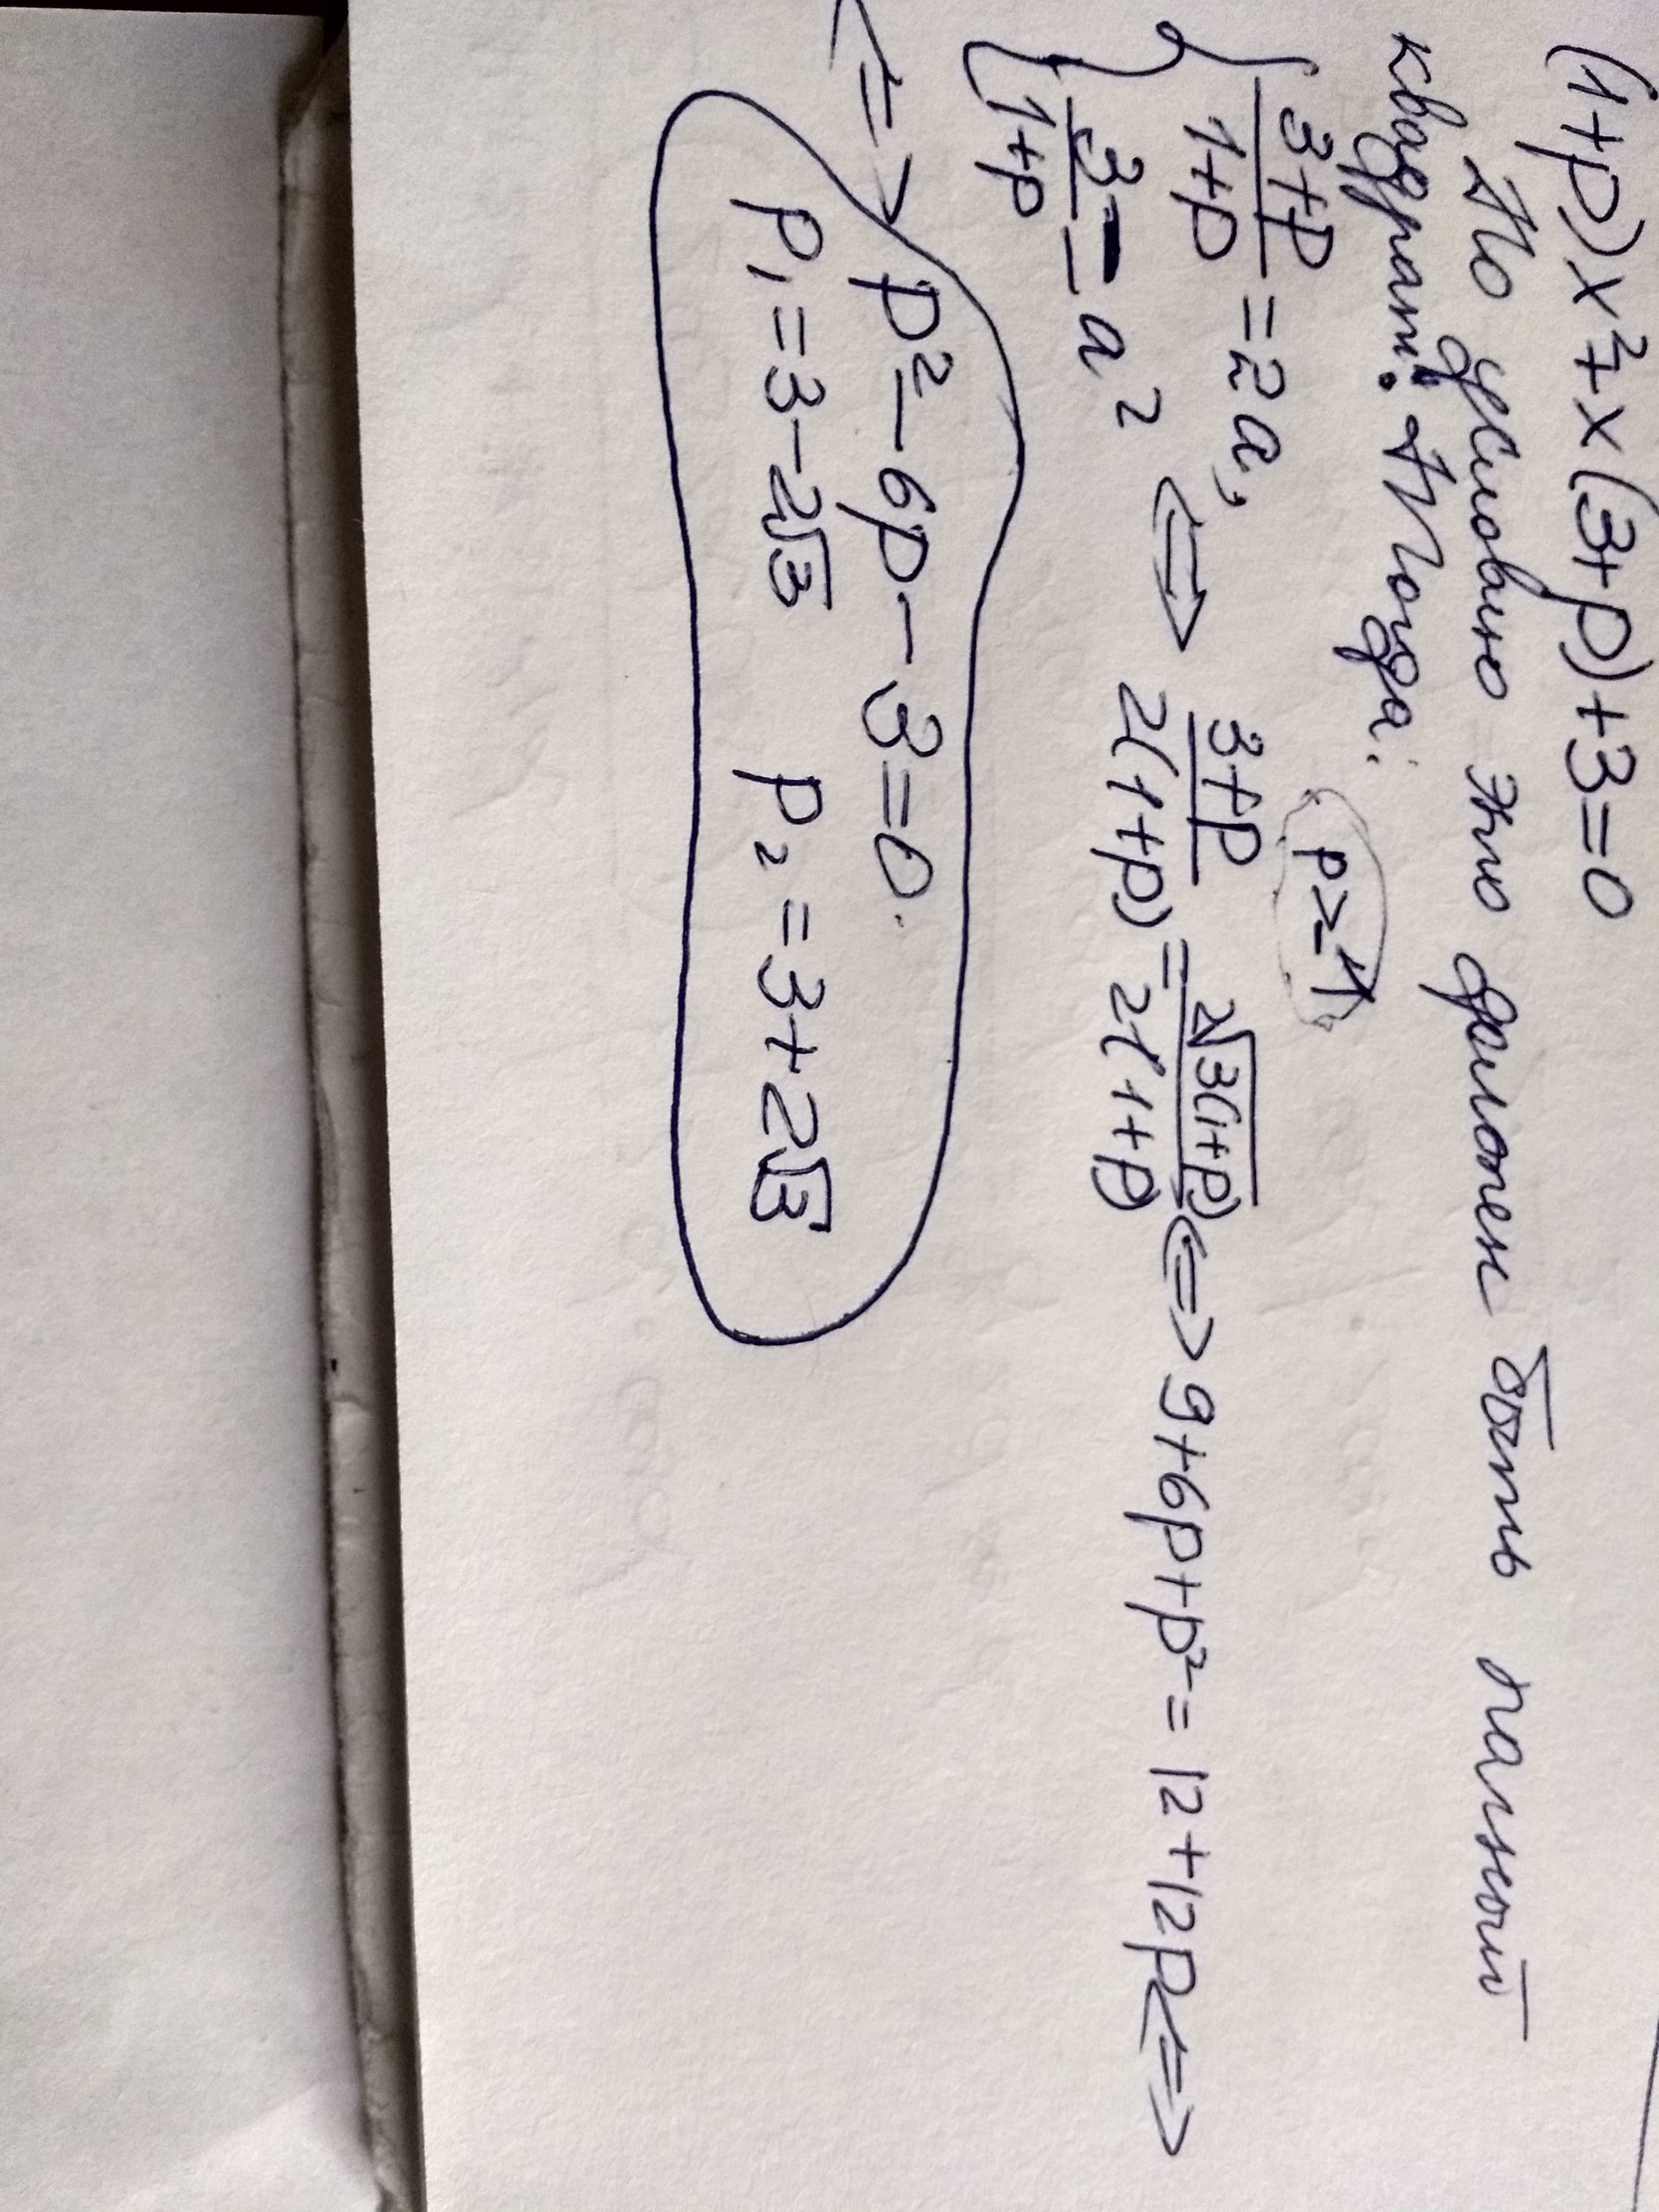 (1+p)x²+x(3+p)+3=0
По условию это должен быть полный
квадрат. Тогда:
p>-1
{ (3+p)/(1+p) = 2a, <=> (3+p)/(2(1+p)) = 2√(3(1+p))/(2(1+p)) <=> 9+6p+p²=12+12p <=>
{ 3/(1+p) = a²
<=> p²-6p-3=0.
p₁=3-2√3 p₂=3+2√3